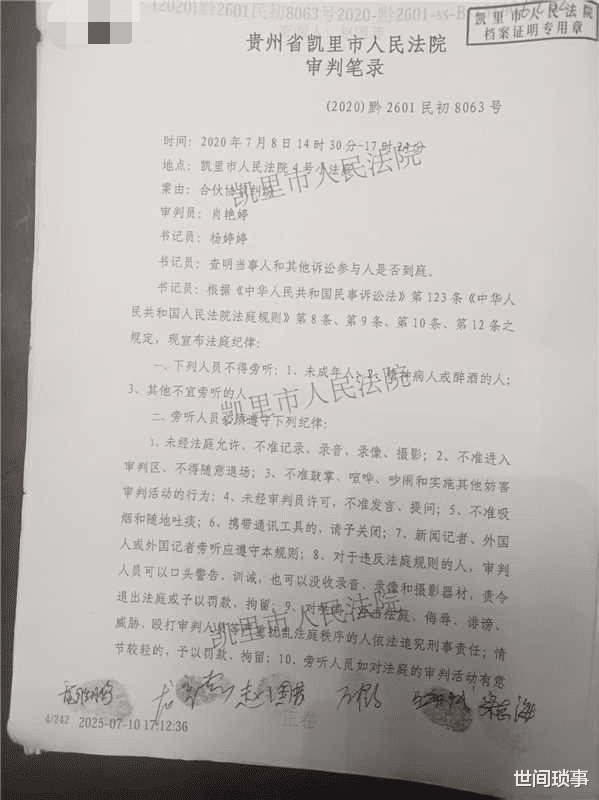 (2020)黔2601民初8063号2020-黔2601-ss-B
凯里市人民法院
档案证明专用章
贵州省凯里市人民法院
审判笔录
(2020)黔2601民初8063号
时间:2020年7月8日14时30分-17时24分
地点:凯里市人民法院4号小法庭
案由:合伙协议纠纷
审判员:肖艳婷
书记员:杨婷婷
书记员:查明当事人和其他诉讼参与人是否到庭。
书记员:根据《中华人民共和国民事诉讼法》第123条《中华人
民共和国人民法院法庭规则》第8条、第9条、第10条、第12条之
规定,现宣布法庭纪律:
一、下列人员不得旁听:1、未成年人;2、精神病人或醉酒的人;
3、其他不宜旁听的人。
二、旁听人员必须遵守下列纪律:
1、未经法庭允许、不准记录、录音、录像、摄影;2、不准进入
审判区、不得随意退场;3、不准鼓掌、喧哗、吵闹和实施其他妨害
审判活动的行为;4、未经审判员许可,不准发言、提问;5、不准吸
烟和随地吐痰;6、携带通讯工具的、请予关闭;7、新闻记者、外国
人或外国记者旁听应遵守本规则;8、对于违反法庭规则的人,审判
人员可以口头警告、训诫,也可以没收录音、录像和摄影器材,责令
退出法庭或予以罚款、拘留;9、对哄闹、冲击法庭、侮辱、诽谤、
威胁、殴打审判人员等严重扰乱法庭秩序的人依法追究刑事责任;情
节较轻的,予以罚款、拘留;10、旁听人员如对法庭的审判活动有意
凯里市人民法院
凯里市人民法院
凯里市人民法院
4/242 2025-07-10 17:12:36
正卷
世间琐事